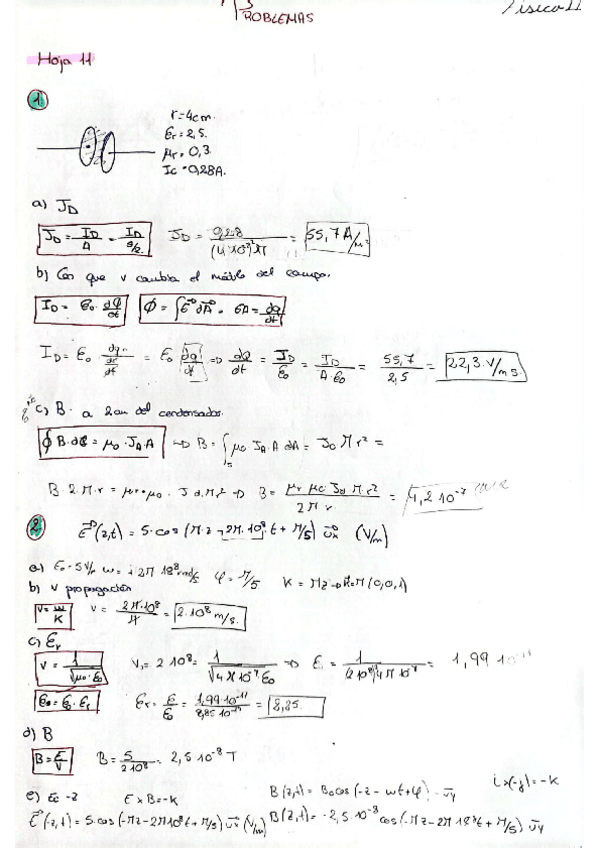 PROBLEMAS
Física II
Hoja 11
1
r=4cm.
εr=2,5.
μr=0,3.
Ic=0,28A.
a) J_D
J_D = I_D/A = I_D/S J_D = 0,28/((4×10⁻²)²π) = 55,7 A/m²
b) Con que v cambia el módulo del campo.
I_D = ε₀ · dΦ/dt Φ = ∫E⃗ dA⃗
I_D = ε₀ = ε₀ ⇒ = J_D/ε₀ = I_D/(A·ε₀) = 55,7/2,5 = 22,3 V/m s.
c) B a 2cm del condensador.
∮B·dl = μ₀·J_A·A ⇒ B = ∫s μ₀ J_A·A dA = J_D π r² =
B·2·π·r = μr·μ₀ · Jd·πr² ⇒ B = (μr μ₀ Jd π·r²)/(2πr) = 4,2·10⁻⁷
2
E⃗(z,t) = 5·cos(π·z - 2π·10⁸ t + π/5) u⃗x (V/m)
a) E₀=5V/m w = 2π 10⁸ rad/s φ = π/5 K = πz → k⃗=π(0,0,1)
b) v propagación
v = w/K v = 2π·10⁸/π = 2·10⁸ m/s.
c) εr
v = 1/√(μ₀·ε₀) v = 2·10⁸ = 1/√(4π×10⁻⁷ε₀) ⇒ ε = = 1,99·10⁻¹¹
ε₀ = ε₀·εr εr = ε/ε₀ = 1,99·10⁻¹¹/8,85·10⁻¹² = 2,25.
d) B
B = E/v B = 5/2·10⁸ = 2,5·10⁻⁸ T
e) Ec -z E×B=-k B(z,t) = B₀cos(-z - wt+φ) - u⃗y i×(-j)=-k
E⃗(-z,t) = 5·cos(-πz-2π10⁸t+π/5) u⃗x (V/m) B(z,t) = -2,5·10⁻⁸ cos(-πz-2π 10⁸t+π/5) u⃗y